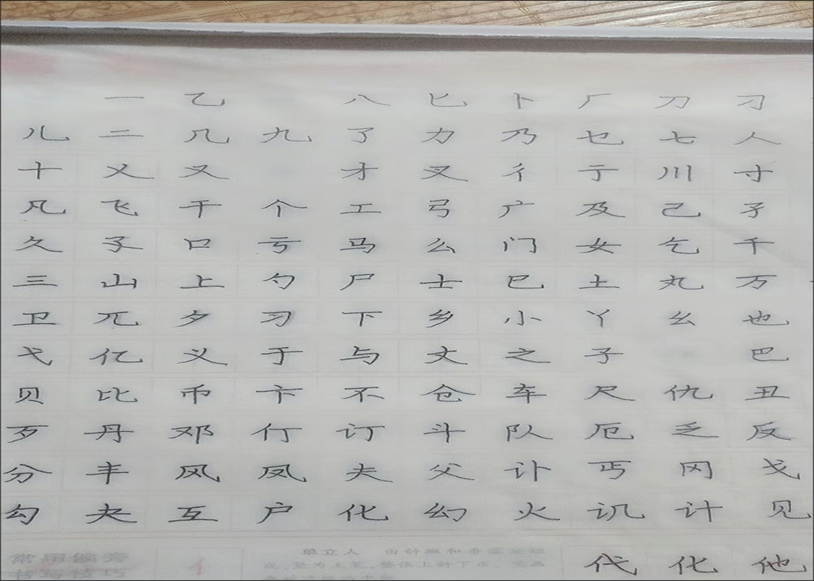 一 乙 八 匕 卜 厂 刀 刁
儿 二 几 九 了 力 乃 七 七 人
十 乂 又 才 叉 彳 亍 川 寸
凡 飞 干 个 工 弓 广 及 己 孑
久 孑 口 亏 马 么 门 女 乞 千
三 山 上 勺 尸 士 巳 土 丸 万
卫 兀 夕 习 下 乡 小 丫 幺 也
弋 亿 义 于 与 丈 之 子 巴
贝 比 币 卞 不 仓 车 尺 仇 丑
歹 丹 邓 仃 订 斗 队 厄 乏 反
分 丰 风 凤 夫 父 讣 丐 冈 戈
勾 夬 互 户 化 幻 火 讥 计 见
代 化 他